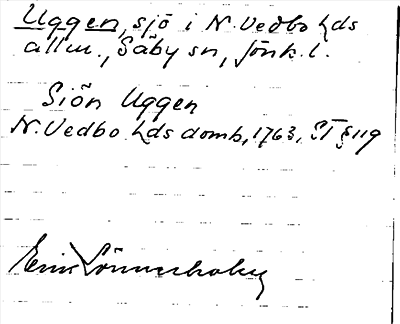 Uggen, sjö i N. Vedbo hds
allm., Säby sn, Jönk. l.
Siön Uggen
N. Vedbo hds domb, 1763, ST § 119
Erik Lönnerholm